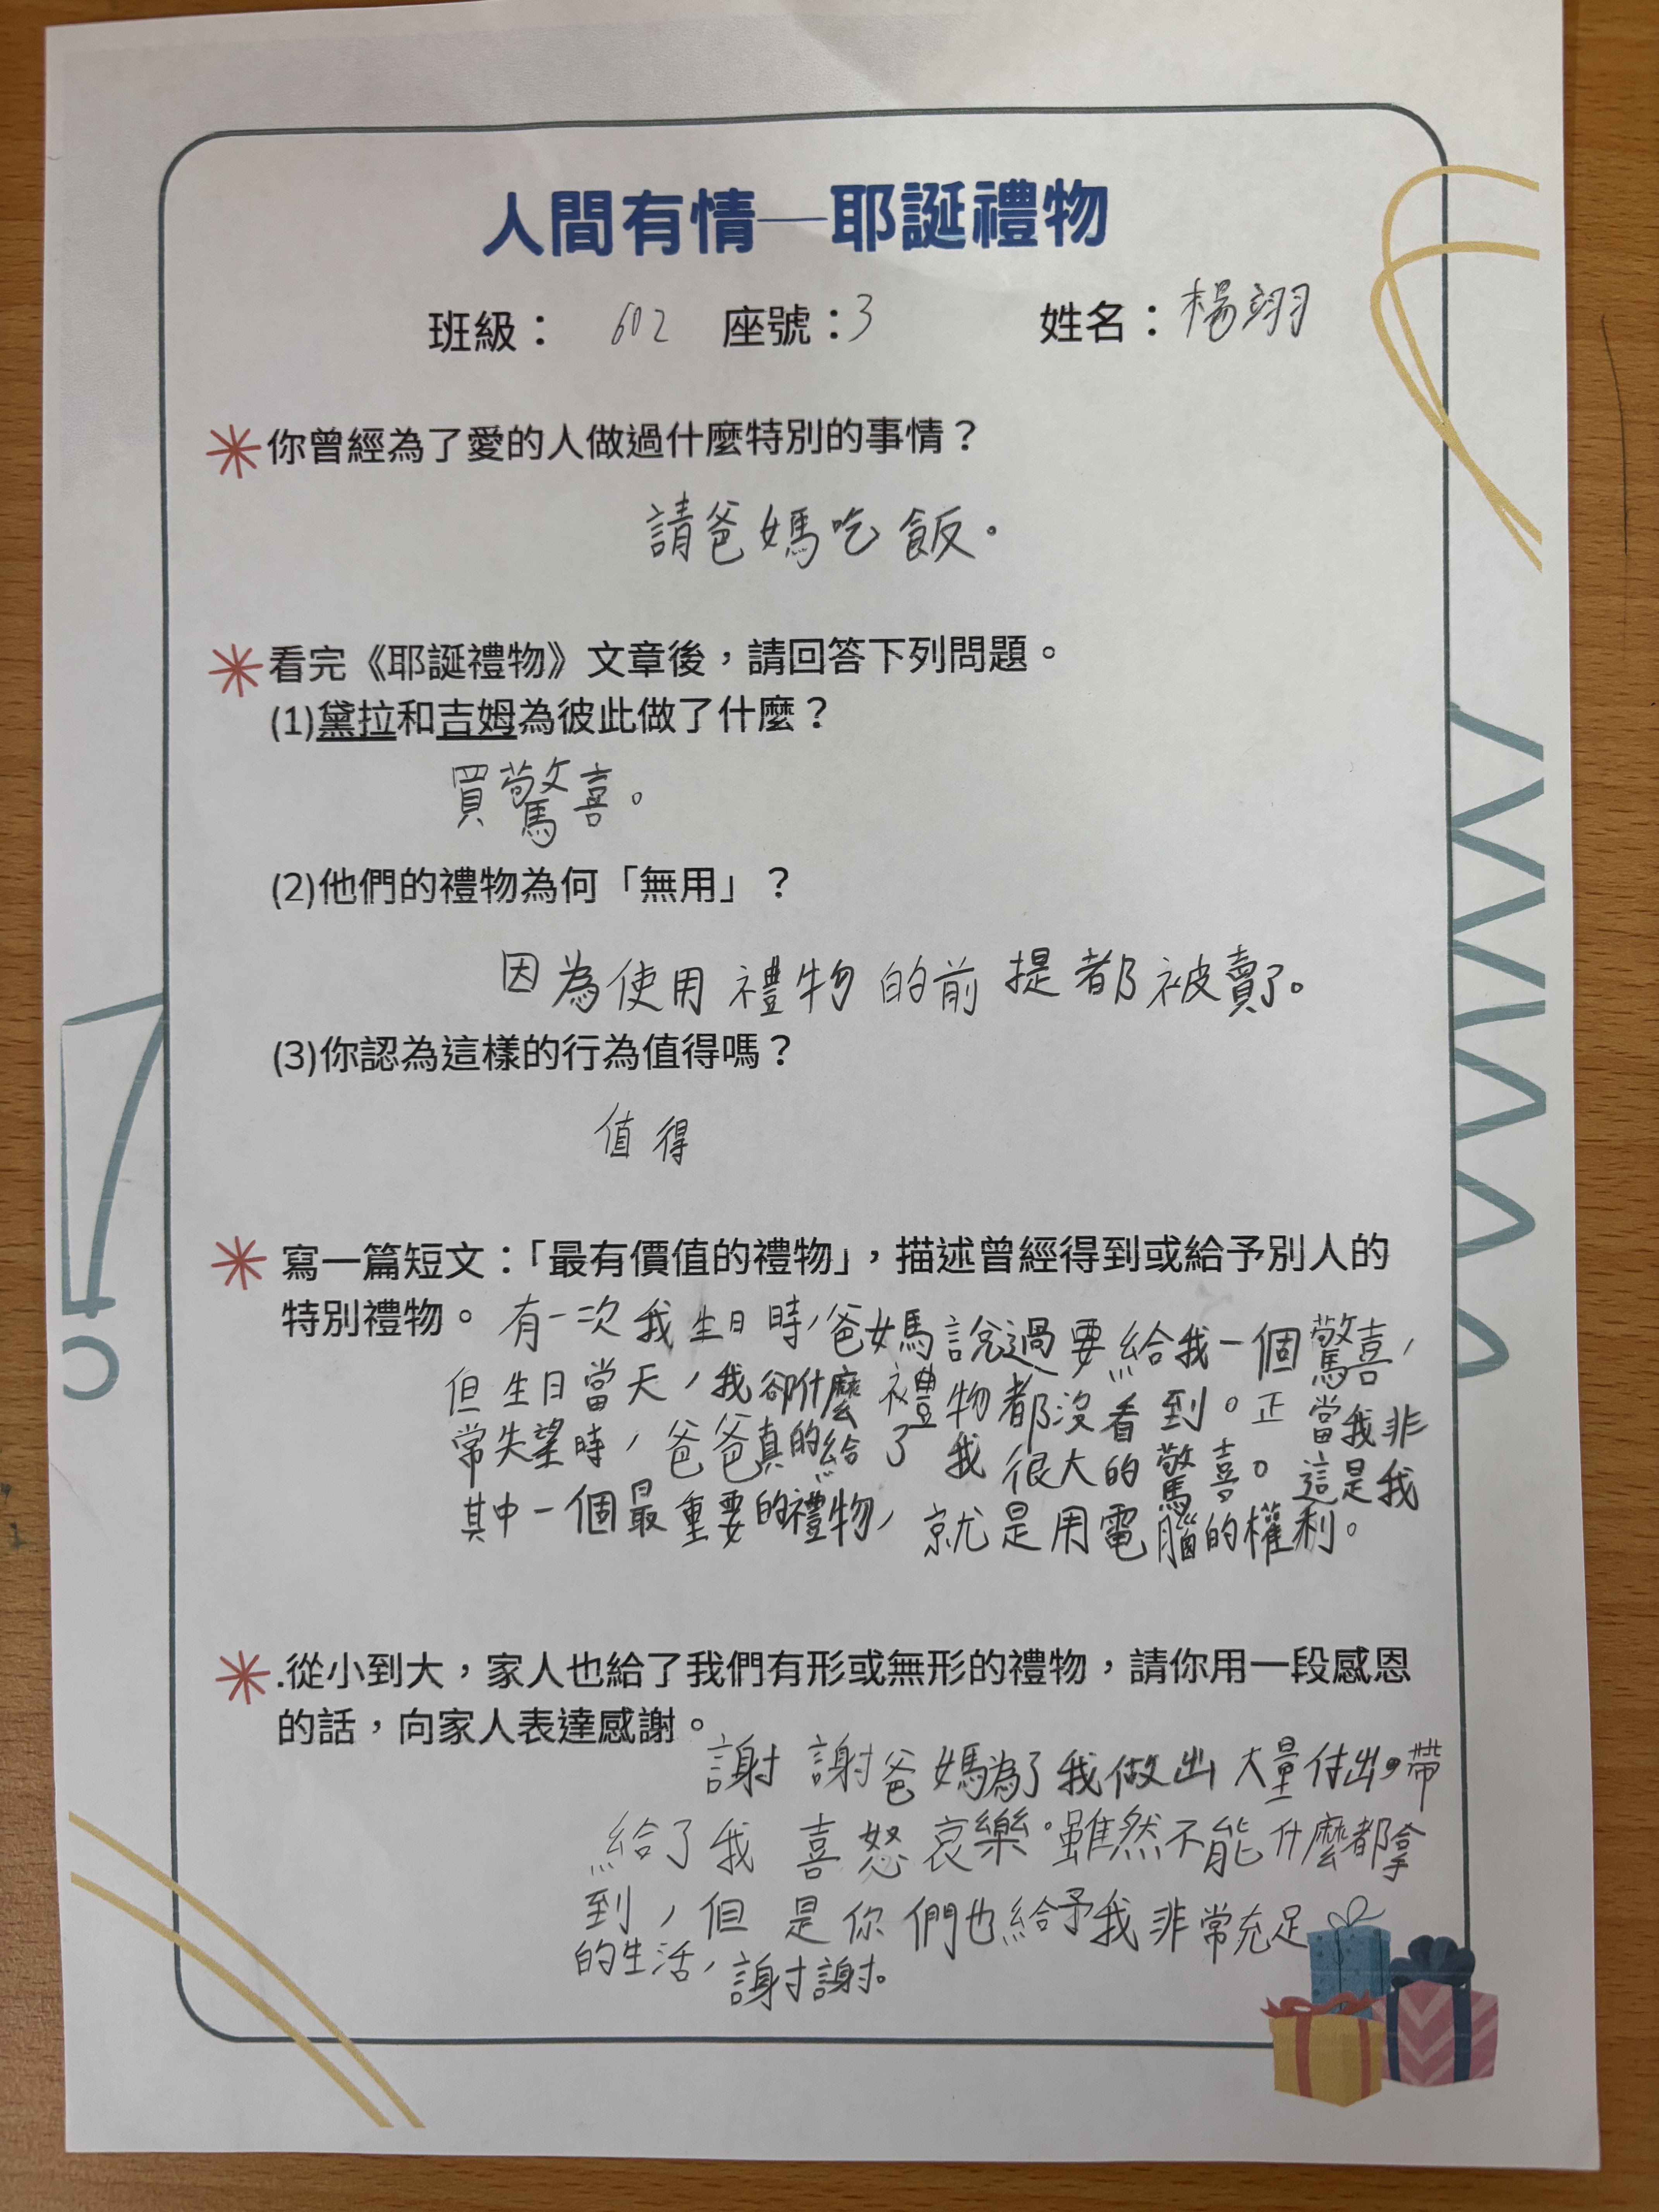 人間有情—耶誕禮物
班級： 602 座號：3 姓名：楊翊
你曾經為了愛的人做過什麼特別的事情？
請爸媽吃飯。
看完《耶誕禮物》文章後，請回答下列問題。
(1)黛拉和吉姆為彼此做了什麼？
買驚喜。
(2)他們的禮物為何「無用」？
因為使用禮物的前提都被賣了。
(3)你認為這樣的行為值得嗎？
值得
寫一篇短文：「最有價值的禮物」，描述曾經得到或給予別人的
特別禮物。有一次我生日時，爸媽說過要給我一個驚喜，
但生日當天，我卻什麼禮物都沒看到。正當我非
常失望時，爸爸真的給了我很大的驚喜。這是我
其中一個最重要的禮物，就是用電腦的權利。
.從小到大，家人也給了我們有形或無形的禮物，請你用一段感恩
的話，向家人表達感謝。謝謝爸媽為了我做出大量付出，帶
給了我喜怒哀樂。雖然不能什麼都拿
到，但是你們也給予我非常充足
的生活，謝謝。